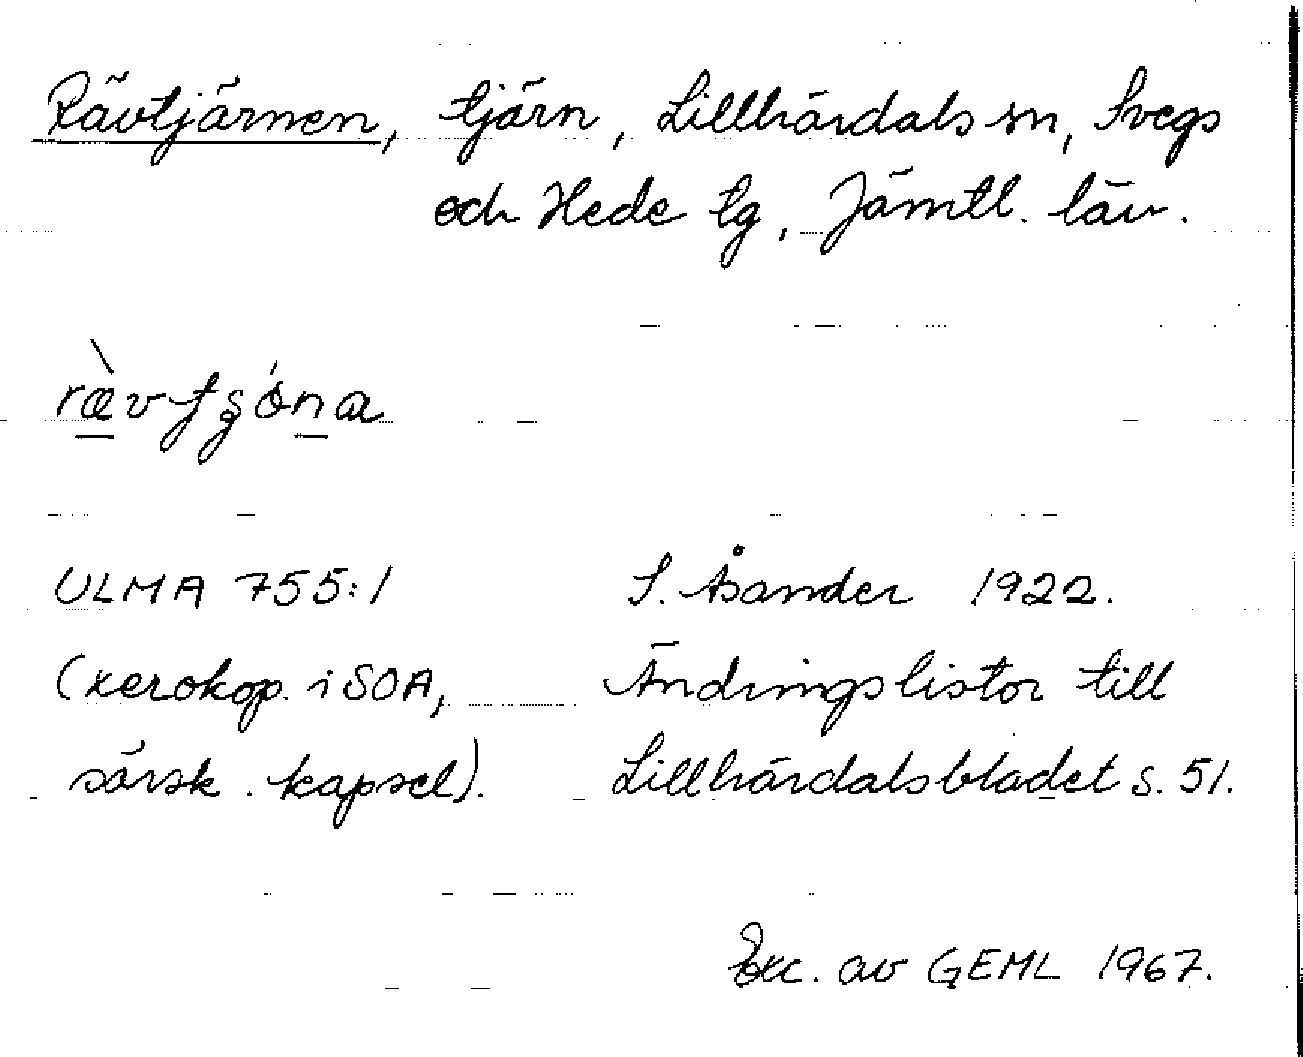 Rävtjärnen, tjärn, Lillhärdals sn, Svegs
och Hede tg, Jämtl. län.
ULMA 755:1 S. Åsander 1922.
(xerokop. i SOA, Ändringslistor till
särsk. kapsel). Lillhärdalsbladet s. 51.
Exc. av GEML 1967.